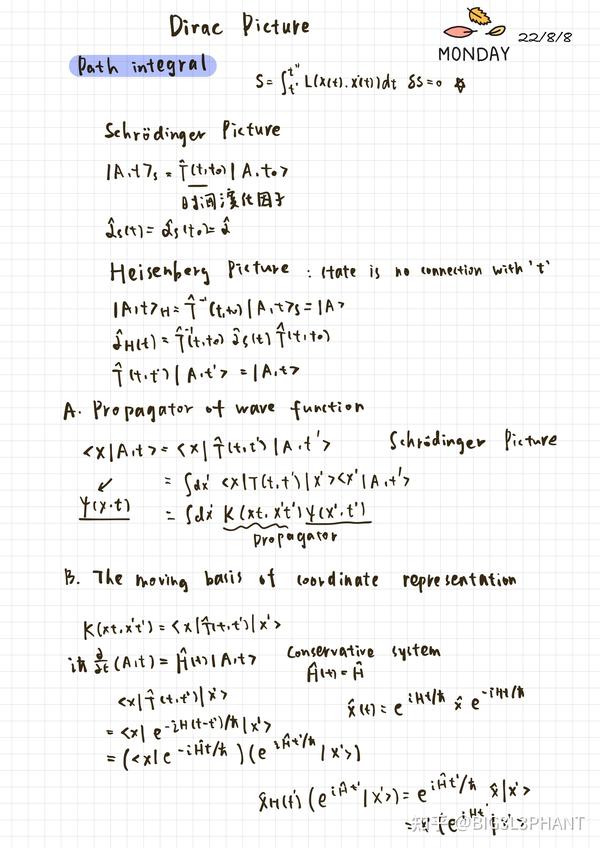 Dirac Picture
MONDAY 22/8/8
Path integral
S = ∫_{t'}^{t''} L(x(t),ẋ(t))dt δS=0 ☆
Schrödinger Picture
|A,t>_S = T̂(t,t₀)|A,t₀>
时间演化因子
α̂_S(t) = α̂_S(t₀) = α̂
Heisenberg Picture : State is no connection with 't'
|A,t>_H = T̂⁻¹(t,t₀)|A,t>_S = |A>
α̂_H(t) = T̂⁻¹(t,t₀) α̂_S(t) T̂(t,t₀)
T̂(t,t')|A,t'> = |A,t>
A. Propagator of wave function
<x|A,t> = <x|T̂(t,t')|A,t'> Schrödinger Picture
= ∫dx' <x|T(t,t')|x'><x'|A,t'>
ψ(x,t) = ∫dx' K(xt,x't')ψ(x',t')
Propagator
B. The moving basis of coordinate representation
K(xt,x't') = <x|T̂(t,t')|x'>
iħ ∂/∂t |A,t> = Ĥ(t)|A,t> Conservative system
Ĥ(t) = Ĥ
<x|T̂(t,t')|x'>
x̂(t) = e^{iHt/ħ} x̂ e^{-iHt/ħ}
= <x| e^{-iH(t-t')/ħ}|x'>
= (<x|e^{-iĤt/ħ})(e^{iĤt'/ħ}|x'>)
x̂_H(t')(e^{iĤt'}|x'>) = e^{iĤt'/ħ} x̂|x'>
知乎 @BIG3L3PHANT